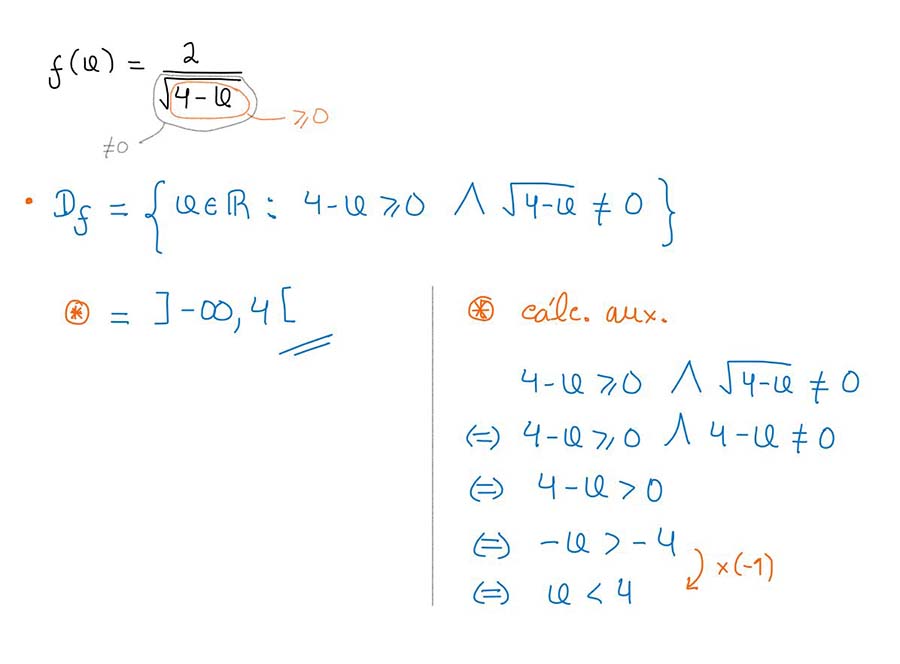 f(x) = 2/√(4-x)
≥0
≠0
• D_f = { x ∈ ℝ : 4-x ≥ 0 ∧ √(4-x) ≠ 0 }
⊛ = ]-∞, 4[
⊛ cálc. aux.
4-x ≥ 0 ∧ √(4-x) ≠ 0
(=) 4-x ≥ 0 ∧ 4-x ≠ 0
(=) 4-x > 0
(=) -x > -4
×(-1)
(=) x < 4